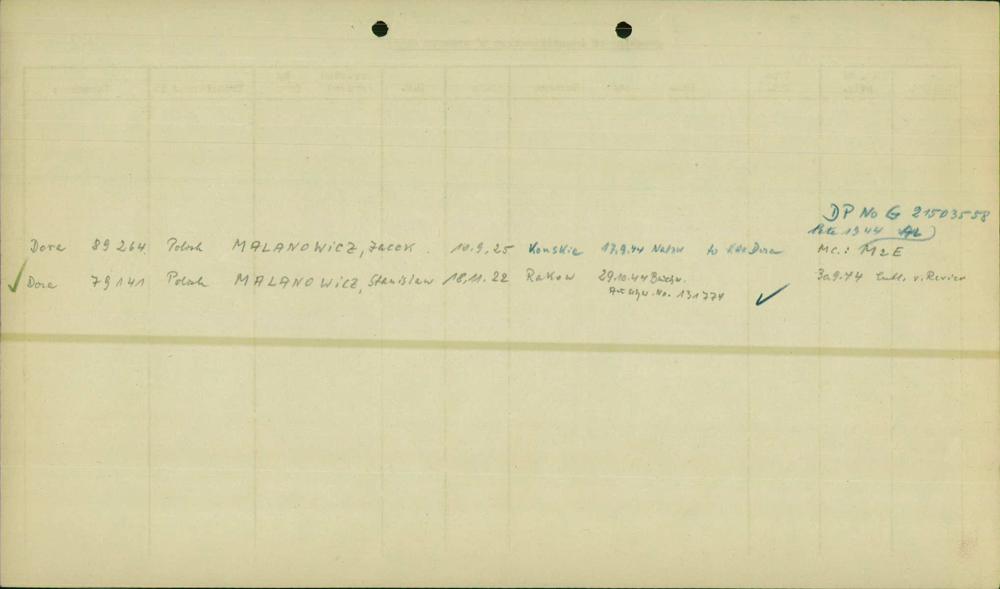 DP No G 21503558
1944
Dora 89264 Polish MALANOWICZ, Jacek. 10.9.25 Konskie 17.9.44 Natzw to Kdo Dora MC.: M2E
Dora 79141 Polish MALANOWICZ, Stanislaw 18.11.22 Rakow 29.10.44 Buchw. 30.9.44 entl. v. Revier
No. 131774